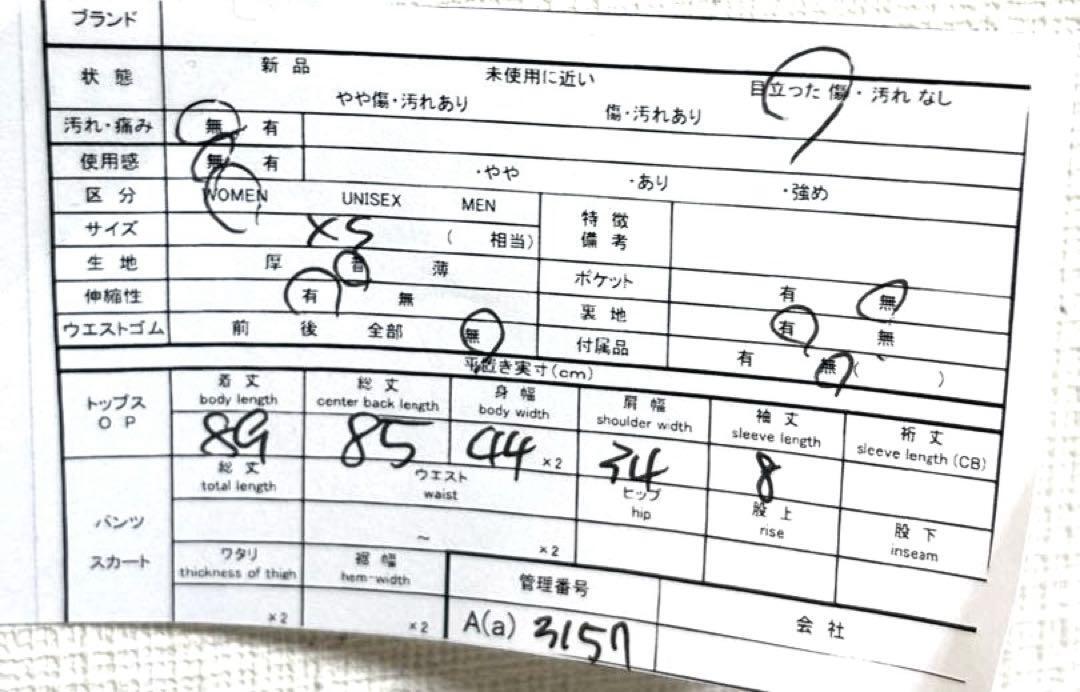 ブランド
状態 新品 未使用に近い 目立った傷・汚れなし
やや傷・汚れあり 傷・汚れあり
汚れ・痛み 無 有
使用感 無 有 ・やや ・あり ・強め
区分 WOMEN UNISEX MEN 特徴
備考
サイズ XS ( 相当)
生地 厚 普 薄 ポケット 有 無
伸縮性 有 無 裏地 有 無
ウエストゴム 前 後 全部 無 付属品 有 無 ( )
平置き実寸(cm)
トップス
OP
着丈 総丈 身幅 肩幅 袖丈 裄丈
body length center back length body width shoulder width sleeve length sleeve length (CB)
89 85 44 ×2 34 8
パンツ
スカート
総丈 ウエスト ヒップ 股上 股下
total length waist hip rise inseam
~ ×2
ワタリ 裾幅 管理番号 会社
thickness of thigh hem-width
×2 ×2 A(a) 3157